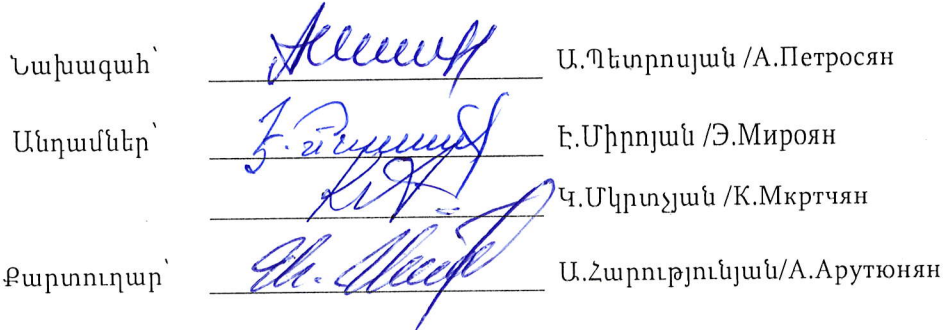 Նախագահ՝ Ա.Պետրոսյան /А.Петросян
Անդամներ՝ Է.Միրոյան /Э.Мироян
Կ.Մկրտչյան /К.Мкртчян
Քարտուղար՝ Ա.Հարությունյան/А.Арутюнян